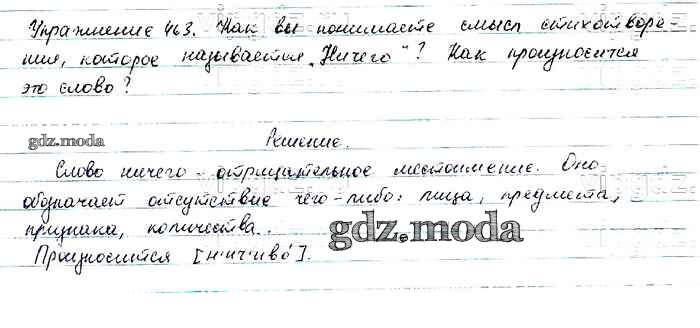 Упражнение 463. Как вы понимаете смысл стихотворе-
ния, которое называется „Ничего"? Как произносится
это слово?
gdz.moda
Решение.
Слово ничего - отрицательное местоимение. Оно
обозначает отсутствие чего-либо: лица, предмета,
признака, количества.
gdz.moda
Произносится [н'ич'иво́].